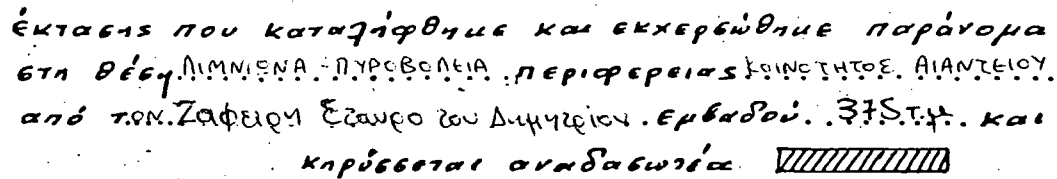 έκτασης που καταλήφθηκε και εκχερσώθηκε παράνομα
στη θέση ΛΙΜΝΙΩΝΑ - ΠΥΡΟΒΟΛΕΙΑ περιφερειας ΚΟΙΝΟΤΗΤΟΣ ΑΙΑΝΤΕΙΟΥ
από τον Ζαφείρη Σταύρο του Δημητρίου εμβαδού 375 τ.μ. και
κηρύσσεται αναδασωτέα